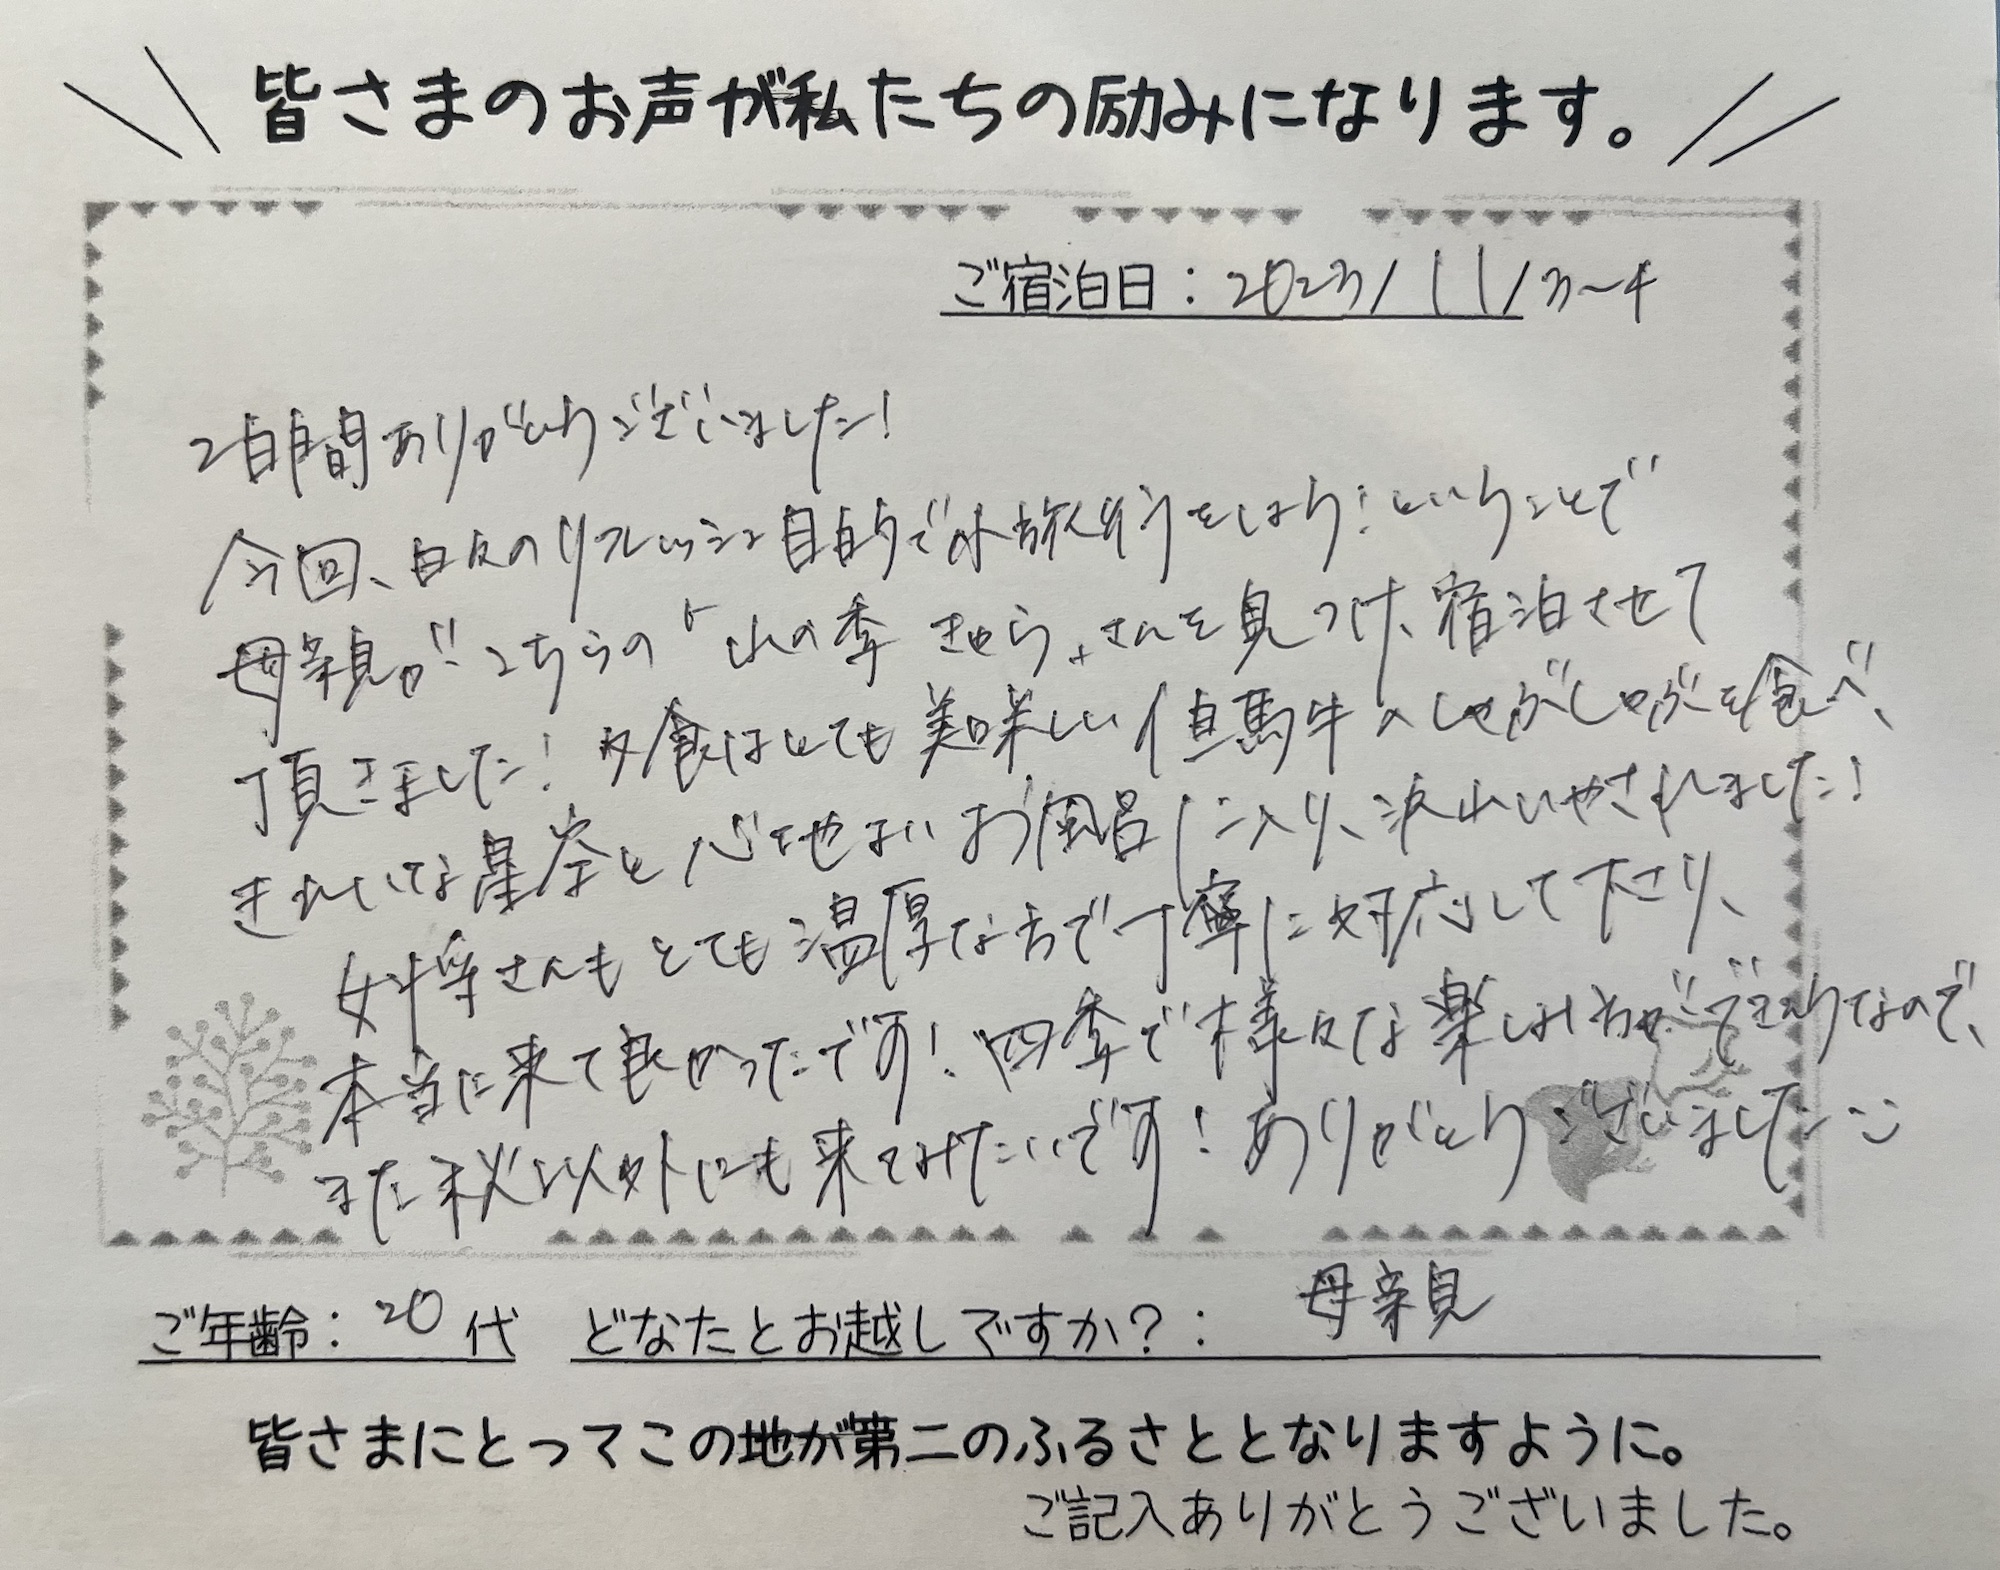 皆さまのお声が私たちの励みになります。
ご宿泊日：2023/11/3~4
2日間ありがとうございました！
今回、日々のリフレッシュ目的で小旅行をしよう！ということで
母親がこちらの「山の季 きゅら」さんを見つけ、宿泊させて
頂きました！夕食はとても美味しい但馬牛のしゃぶしゃぶを食べ、
きれいな星空と心地よいお風呂に入り、沢山いやされました！
女将さんもとても温厚な方で丁寧に対応して下さり、
本当に来て良かったです！四季で様々な楽しみ方ができそうなので、
また秋以外にも来てみたいです！ありがとうございました
ご年齢：20代 どなたとお越しですか？：母親
皆さまにとってこの地が第二のふるさととなりますように。
ご記入ありがとうございました。